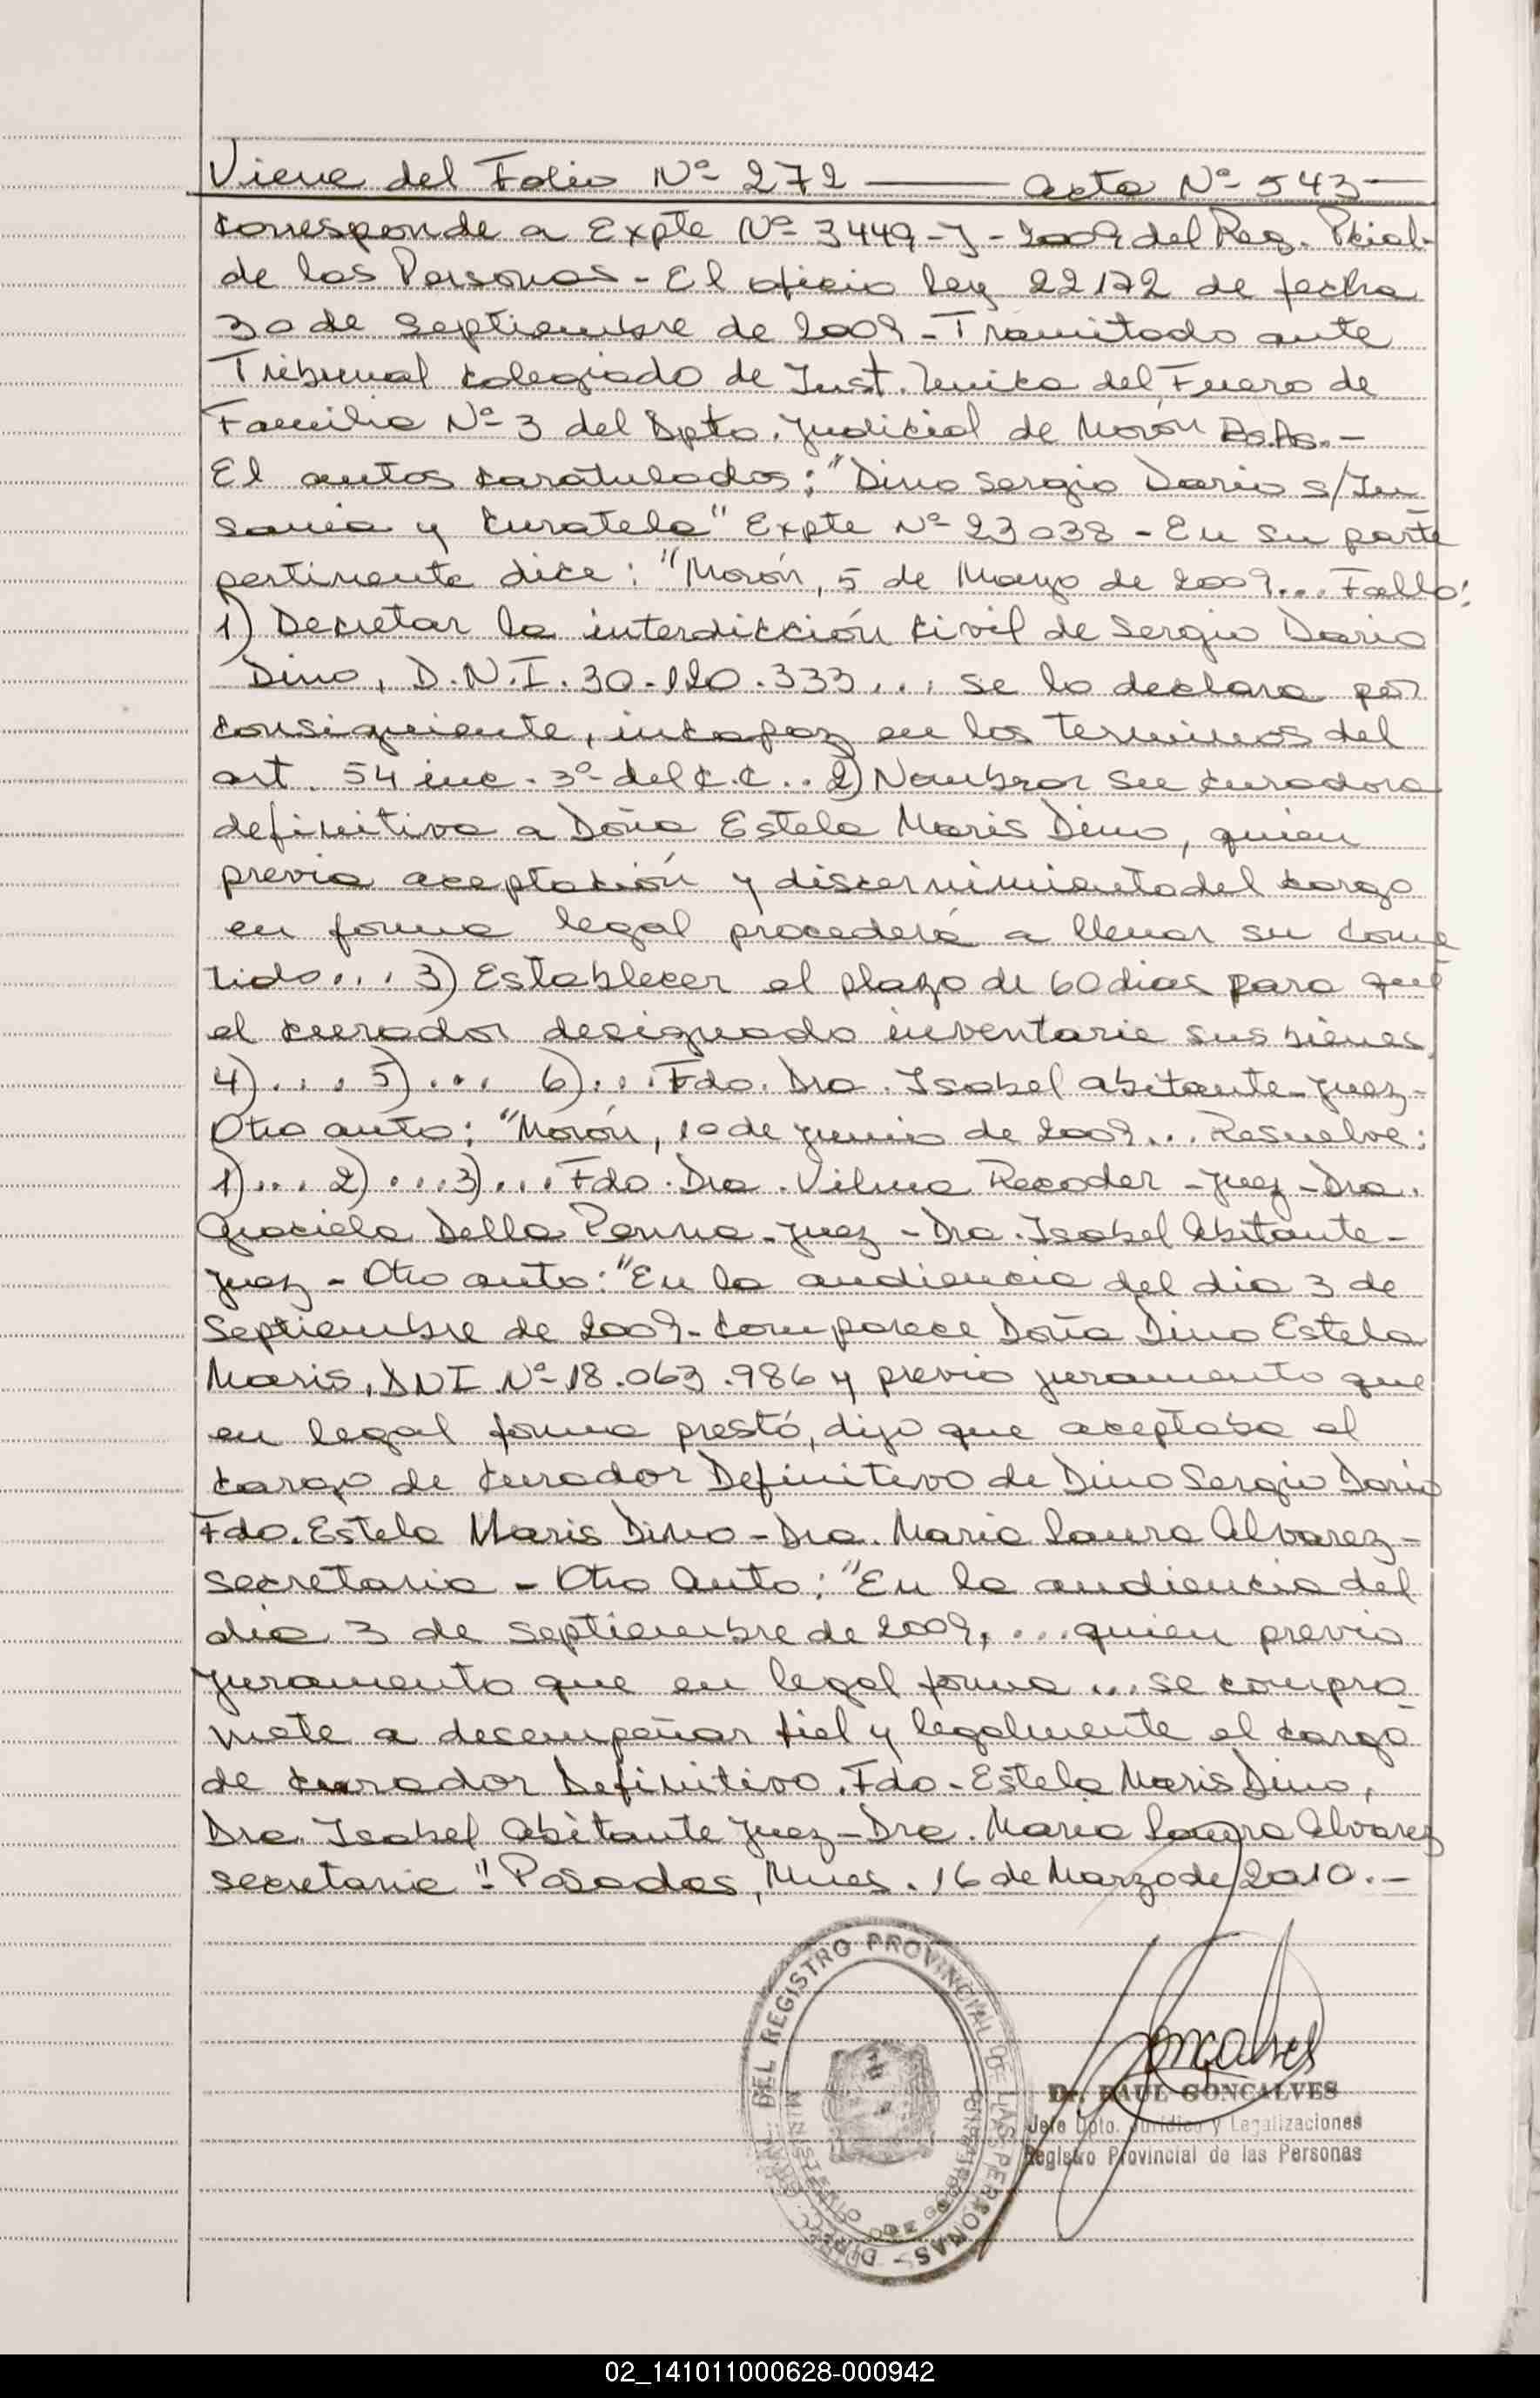 Viene del Folio Nº 272 — acta Nº 543 —
corresponde a Expte Nº 3449-J-2009 del Reg. Pcial-
de las Personas - El oficio ley 22172 de fecha
30 de Septiembre de 2009 - Tramitado ante
Tribunal colegiado de Inst. Unica del Fuero de
Familia Nº 3 del Dpto. Judicial de Morón Bs.As.-
El autos caratulados: "Dino Sergio Dario s/In
sania y Curatela" Expte Nº 23038 - En su parte
pertinente dice: "Morón, 5 de Mayo de 2009... Fallo:
1) Decretar la interdicción civil de Sergio Dario
Dino, D.N.I. 30.120.333... se lo declara por
consiguiente, incapaz en los terminos del
art. 54 inc. 3º del C.C... 2) Nombrar su curadora
definitiva a Doña Estela Maris Dino, quien
previa aceptación y discernimiento del cargo
en forma legal procederá a llenar su come
tido... 3) Establecer el plazo de 60 dias para que
el curador designado inventarie sus bienes
4).... 5).... 6)... Fdo. Dra. Isabel Abitante - Juez-
Otro auto: "Morón, 10 de junio de 2009... Resuelve:
1)... 2)....3)... Fdo. Dra. Vilma Recoder - Juez - Dra.
Graciela Della Penna - Juez - Dra. Isabel Abitante -
Juez - Otro auto: "En la audiencia del dia 3 de
Septiembre de 2009 - comparece Doña Dino Estela
Maris, DNI Nº 18.063.986 y previo juramento que
en legal forma prestó, dijo que aceptaba el
cargo de Curador Definitivo de Dino Sergio Dario
Fdo. Estela Maris Dino - Dra. Maria Laura Alvarez -
secretaria - Otro Auto: "En la audiencia del
dia 3 de Septiembre de 2009, ... quien previo
juramento que en legal forma ... se compro
mete a desempeñar fiel y legalmente el cargo
de curador Definitivo. Fdo - Estela Maris Dino,
Dra. Isabel Abitante Juez - Dra. Maria Laura Alvarez
secretaria". Posadas, Mnes. 16 de Marzo de 2010.-
DEL REGISTRO PROVINCIAL DE LAS PERSONAS -
MINISTERIO DE GOBIERNO
Goncalves
Dr. RAUL GONCALVES
Jefe Dpto. Jurídico y Legalizaciones
Registro Provincial de las Personas
02_141011000628-000942